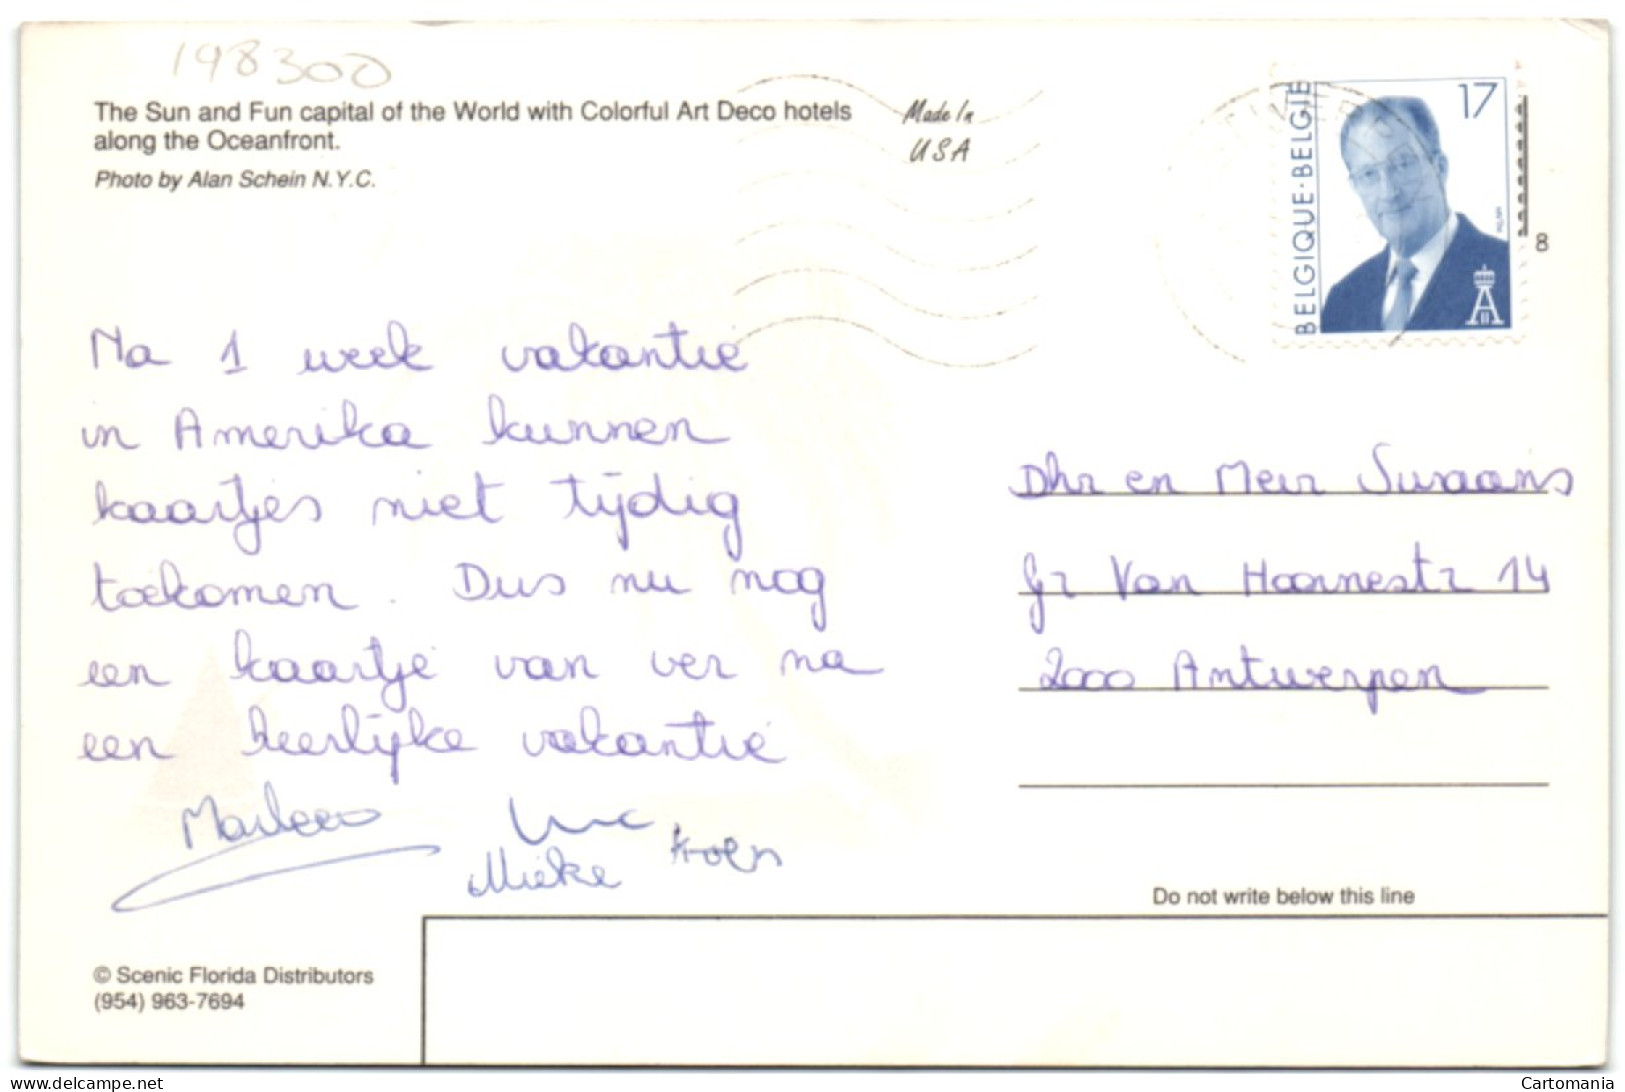 198300
The Sun and Fun capital of the World with Colorful Art Deco hotels
along the Oceanfront.
Photo by Alan Schein N.Y.C.
Made In
USA
BELGIQUE·BELGIE
17
8
Na 1 week vakantie
in Amerika kunnen
kaartjes niet tijdig
toekomen. Dus nu nog
een kaartje van ver na
een heerlijke vakantie
Marleen Luc
Mieke Koen
Dhr en Mevr Swaans
Van 14
2000 Antwerpen
Do not write below this line
© Scenic Florida Distributors
(954) 963-7694
delcampe.net
Cartomania